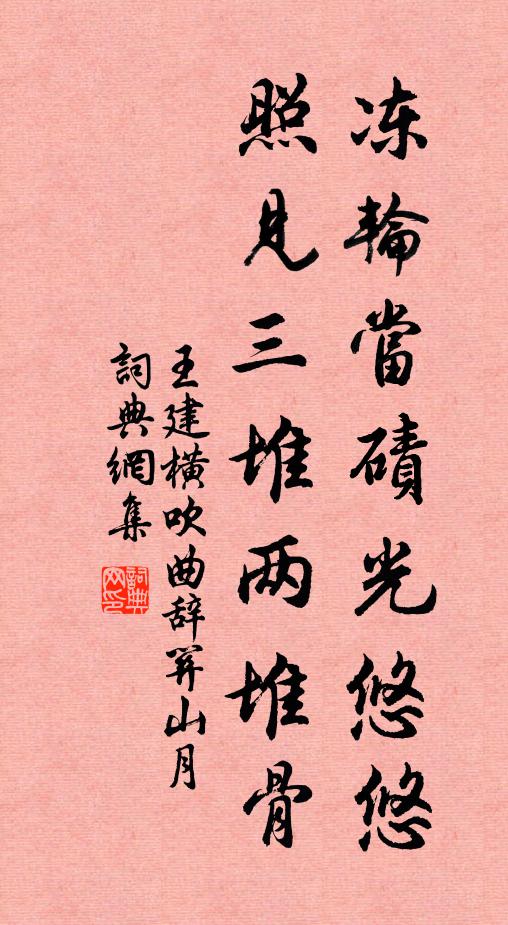 冻輪當磧光悠悠
照見三堆两堆骨
王建横吹曲辞関山月
詞典網集
詞典
网印